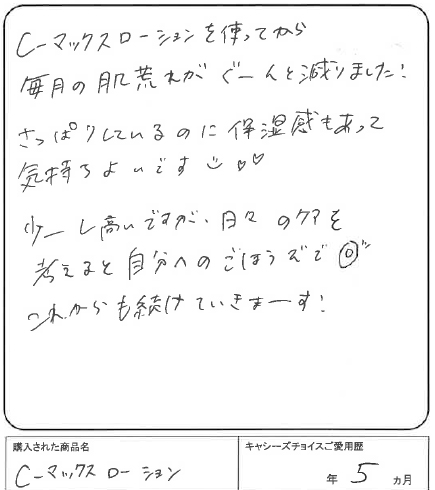 C-マックスローションを使ってから
毎月の肌荒れがぐーんと減りました!
さっぱりしているのに保湿感もあって
気持ちよいです
少ーし高いですが、日々のケアを
考えると自分へのごほうびで◎
これからも続けていきまーす!
購入された商品名
キャシーズチョイスご愛用歴
C-マックスローション
年 5 ヵ月